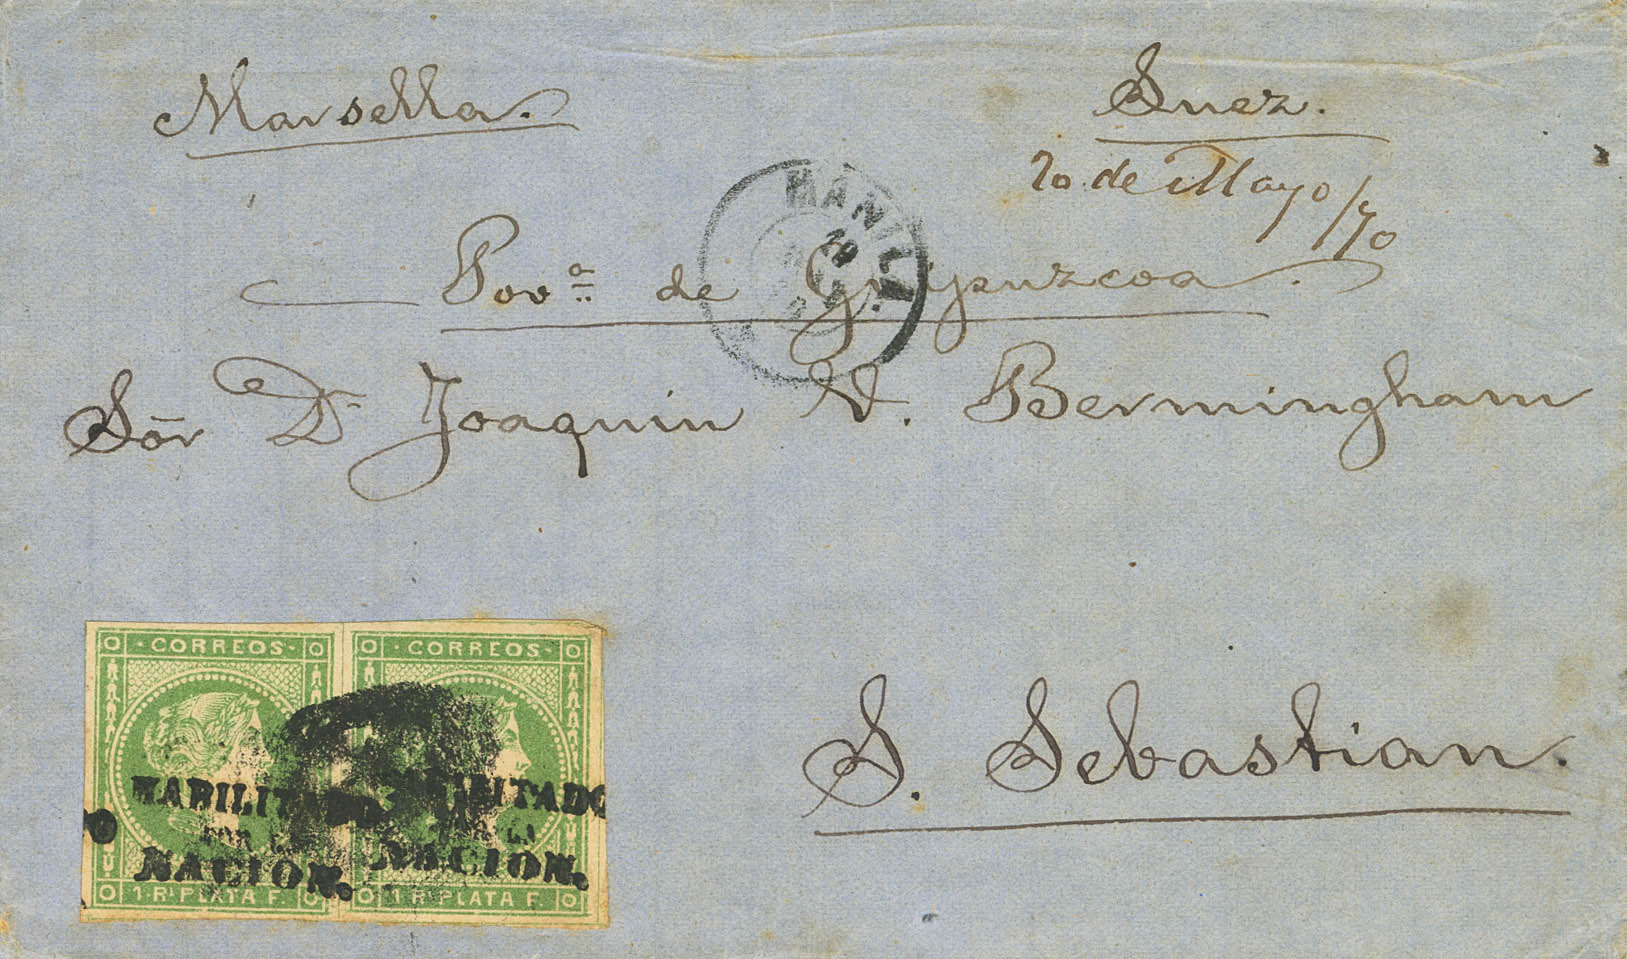 Marsella.
Suez.
20 de Mayo/70
MANILA
Prov.ª de Guipuzcoa.
Sōr Dn Joaquin V. Bermingham
S. Sebastian.
· CORREOS · · CORREOS ·
HABILITADO HABILITADO
POR LA POR LA
NACION. NACION.
1 Rl PLATA F. 1 Rl PLATA F.